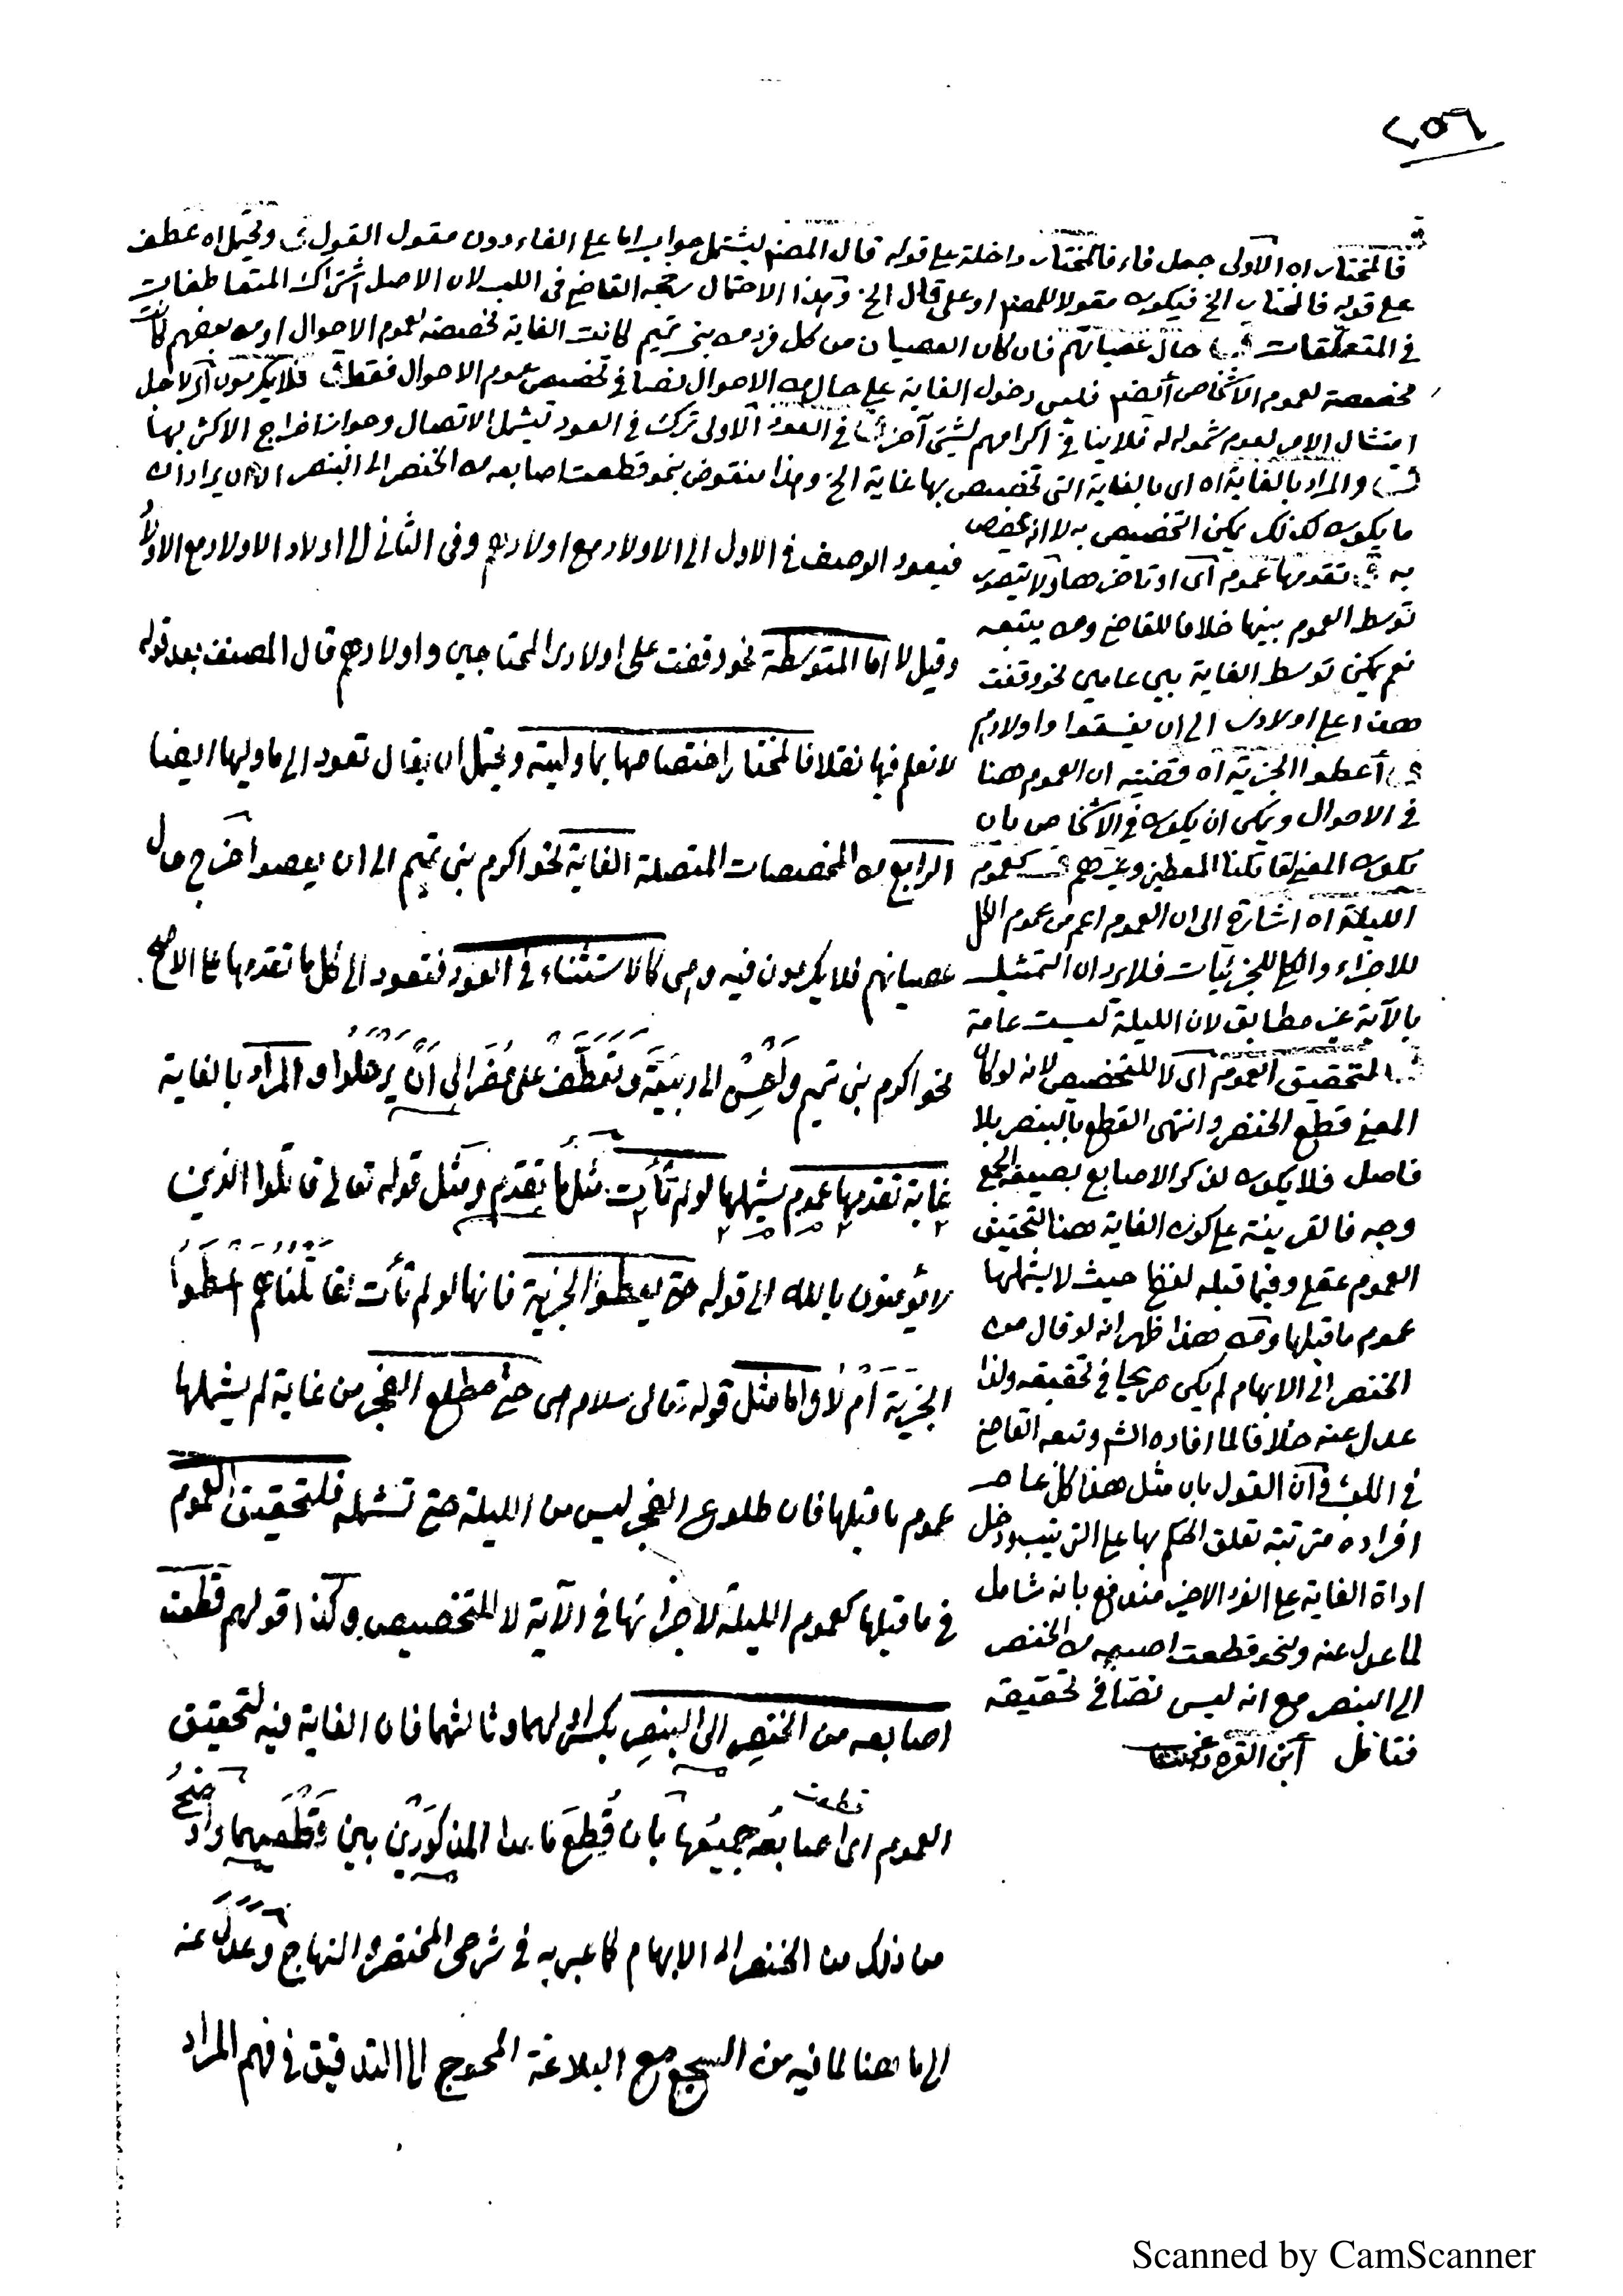 ٢٥٦
فالمختار اه الاولى جعل فاء فالمختار داخلة على قوله قال المصنف ليشتمل جواب اما على الفاء دون مقول القول ويحتمل اه عطف
على قوله فالمختار الخ فيكون مقولا للمصنف او على قال الخ وهذا الاحتمال رجحه القاضي في اللب لان الاصل اشتراك المتعاطفات
في المتعلقات حال عصيانهم فان كان العصيان من كل فرد من بني تميم كانت الغاية مخصصة لعموم الاحوال او من بعضهم كانت
مخصصة لعموم الاشخاص ايضا فليس دخول الغاية على حال من الاحوال نصا في تخصيص عموم الاحوال فقط فلا يكرمون اى لاجل
امتثال الامر لعدم شموله له فلا ينافي اكرامهم لشئ آخر في العود الاولى ترك في العود ليشمل الاتصال وجواز اخراج الاكثر بها
والمراد بالغاية اه اى بالغاية التى تخصيص بها غاية الخ وهذا منقوض بنحو قطعت اصابعه من الخنصر الى البنصر الا ان يراد ان
ما يكون كذلك يمكن التخصيص به لا انه مخصص
به تقدمها عموم اى او تأخر هذا ولا يتصور
توسط العموم بينها خلافا للقاضي ومن يتبعه
نعم يمكن توسط الغاية بين عامين نحو وقفت
هذا على اولادى الى ان يفسقوا واولادهم
أعطوا الجزية اه قضيته ان العموم هنا
في الاحوال ويمكن ان يكون في الاشخاص بان
يكون المعنى لقاتلنا المعطين وغيرهم كعموم
الليلة اه اشارة الى ان العموم اعم من عموم الكل
للاجزاء والكلي للجزئيات فلا يرد ان التمثيل
بالآية غير مطابق لان الليلة ليست عامة
لتحقيق العموم اى لا للتخصيص لانه لو كان
المعنى قطع الخنصر وانتهى القطع بالبنصر بلا
فاصل فلا يكون لذكر الاصابع بصيغة الجمع
وجه فالقرينة على كون الغاية هنا لتحقيق
العموم عقلي وفيما قبله لفظا حيث لا يشملها
عموم ما قبلها ومن هذا ظهر انه لو قال من
الخنصر الى الابهام لم يكن صريحا في تحقيقه ولذا
عدل عنه خلافا لما افاده الشم وتبعه القاضي
في اللب في ان القول بان مثل هذا كل عام
افراده مترتبة تعلق الحكم بها على الترتيب ودخل
اداة الغاية على الفرد الاخير مندفع بانه شامل
لما عدل عنه ونحو قطعت اصبعه من الخنصر
الى البنصر مع انه ليس نصا في تحقيقه
فتأمل ابن القره
فيعود الوصف في الاول الى الاولاد مع اولادهم وفى الثانى الى اولاد الاولاد مع الاولاد
وقيل لا اما المتوسطة نحو وقفت على اولادى المحتاجين واولادهم قال المصنف بعد قوله
لا نعلم فيها نقلا فالمختار اختصاصها بما وليته ويحتمل ان يقال تعود الى ما وليها ايضا
الرابع من المخصصات المتصلة الغاية نحو اكرم بنى تميم الى ان يعصوا خرج حال
عصيانهم فلا يكرمون فيه وهى كالاستثناء فى العود فتعود الى كل ما تقدمها على الاصح
نحو اكرم بنى تميم وأحسن الى ربيعة وتعطف على مضر الى ان يرحلوا والمراد بالغاية
غاية تقدمها عموم يشملها لو لم تأت مثل ما تقدم ومثل قوله تعالى قاتلوا الذين
لا يؤمنون بالله الى قوله حتى يعطوا الجزية فانها لو لم تأت لقاتلناهم اعطوا
الجزية أم لا واما مثل قوله تعالى سلام هى حتى مطلع الفجر من غاية لم يشملها
عموم ما قبلها فان طلوع الفجر ليس من الليلة حتى تشمله فلتحقيق العموم
في ما قبلها كعموم الليلة لاجزائها فى الآية لا للتخصيص وكذا قولهم قطعت
اصابعه من الخنصر الى البنصر بكسر اولهما وثالثهما فان الغاية فيه لتحقيق
العموم اى اصابعه جميعها بان قطع ما عدا المذكورين بين قطعيهما واوضح
قطعت
من ذلك من الخنصر الى الابهام كما عبر به فى شرحى المختصر والمنهاج وعدل عنه
الى ما هنا لما فيه من السجع مع البلاغة المحوج الى التدقيق فى فهم المراد
Scanned by CamScanner